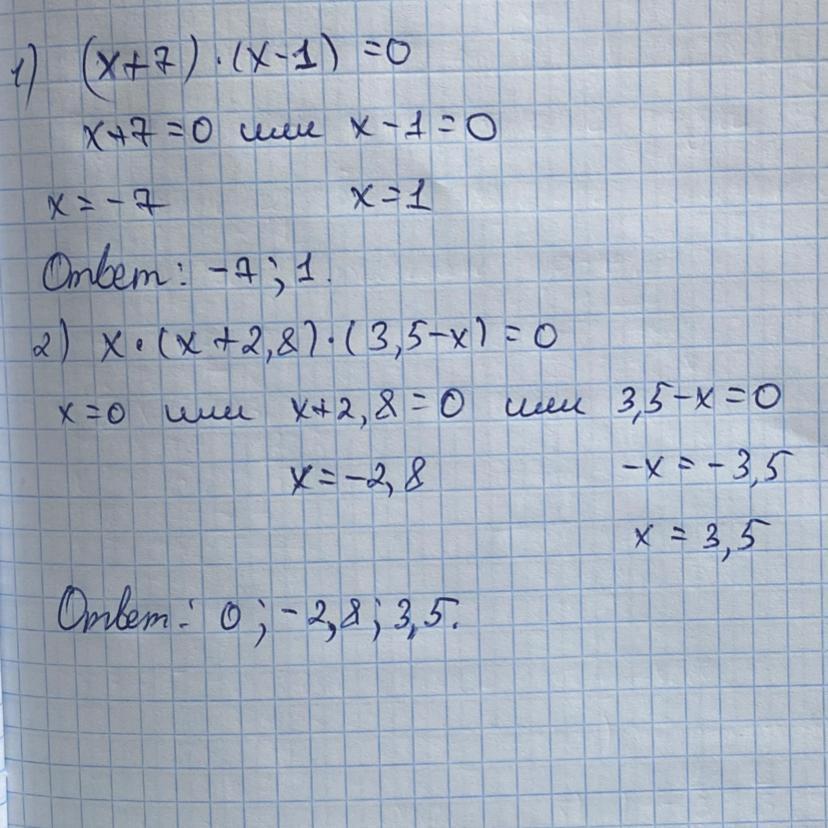 1) (x+7)·(x-1)=0
x+7=0 или x-1=0
x=-7 x=1
Ответ: -7; 1.
2) x·(x+2,8)·(3,5-x)=0
x=0 или x+2,8=0 или 3,5-x=0
x=-2,8 -x=-3,5
x=3,5
Ответ: 0; -2,8; 3,5.